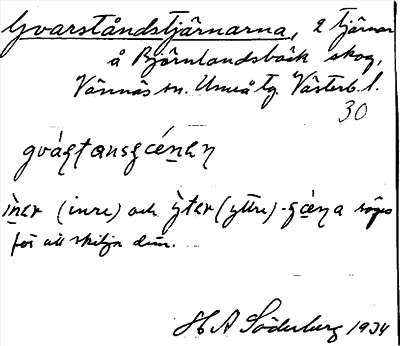 Gvarståndstjärnarna, 2 tjärnar
å Björnlandsbäck skog,
Vännäs sn. Umeå tg. Västerb. l.
30
inre) och (yttre) säges
för att skilja dem.
H A Söderberg 1934